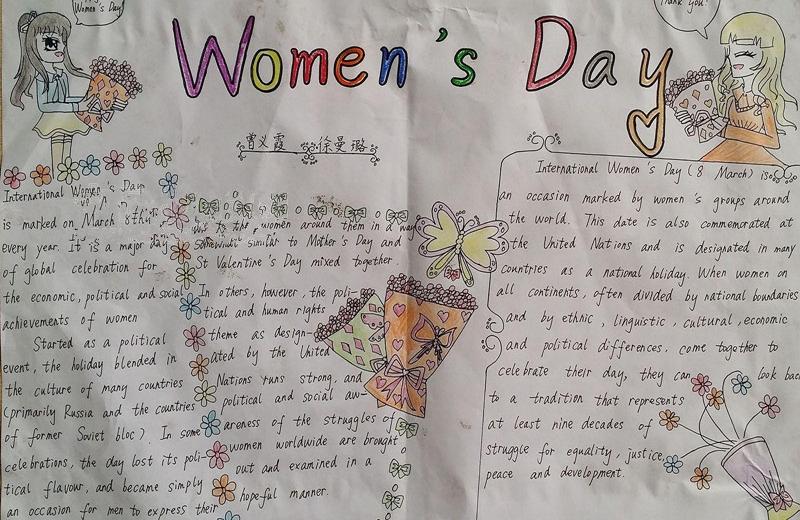 Women's Day
Thank you!
Women's Day
曾义霞 徐曼璐
International Women's Day
is marked on March
every year. It is a major day
of global celebration for
the economic, political and social
achievements of women
Started as a political
event, the holiday blended in
the culture of many countries
(primarily Russia and the countries
of former Soviet bloc). In some
celebrations, the day lost its poli-
tical flavour, and became simply
an occasion for men to express their
to the women around them in a way
somewhat similar to Mother's Day and
St Valentine's Day mixed together.
In others, however, the poli-
tical and human rights
theme as design-
ated by the United
Nations runs strong, and
political and social aw-
areness of the struggles of
women worldwide are brought
out and examined in a
hopeful manner.
International Women's Day (8 March) is
an occasion marked by women's groups around
the world. This date is also commemorated at
the United Nations and is designated in many
countries as a national holiday. When women on
all continents, often divided by national boundaries
and by ethnic, linguistic, cultural, economic
and political differences, come together to
celebrate their day, they can look back
to a tradition that represents
at least nine decades of
struggle for equality, justice,
peace and development.